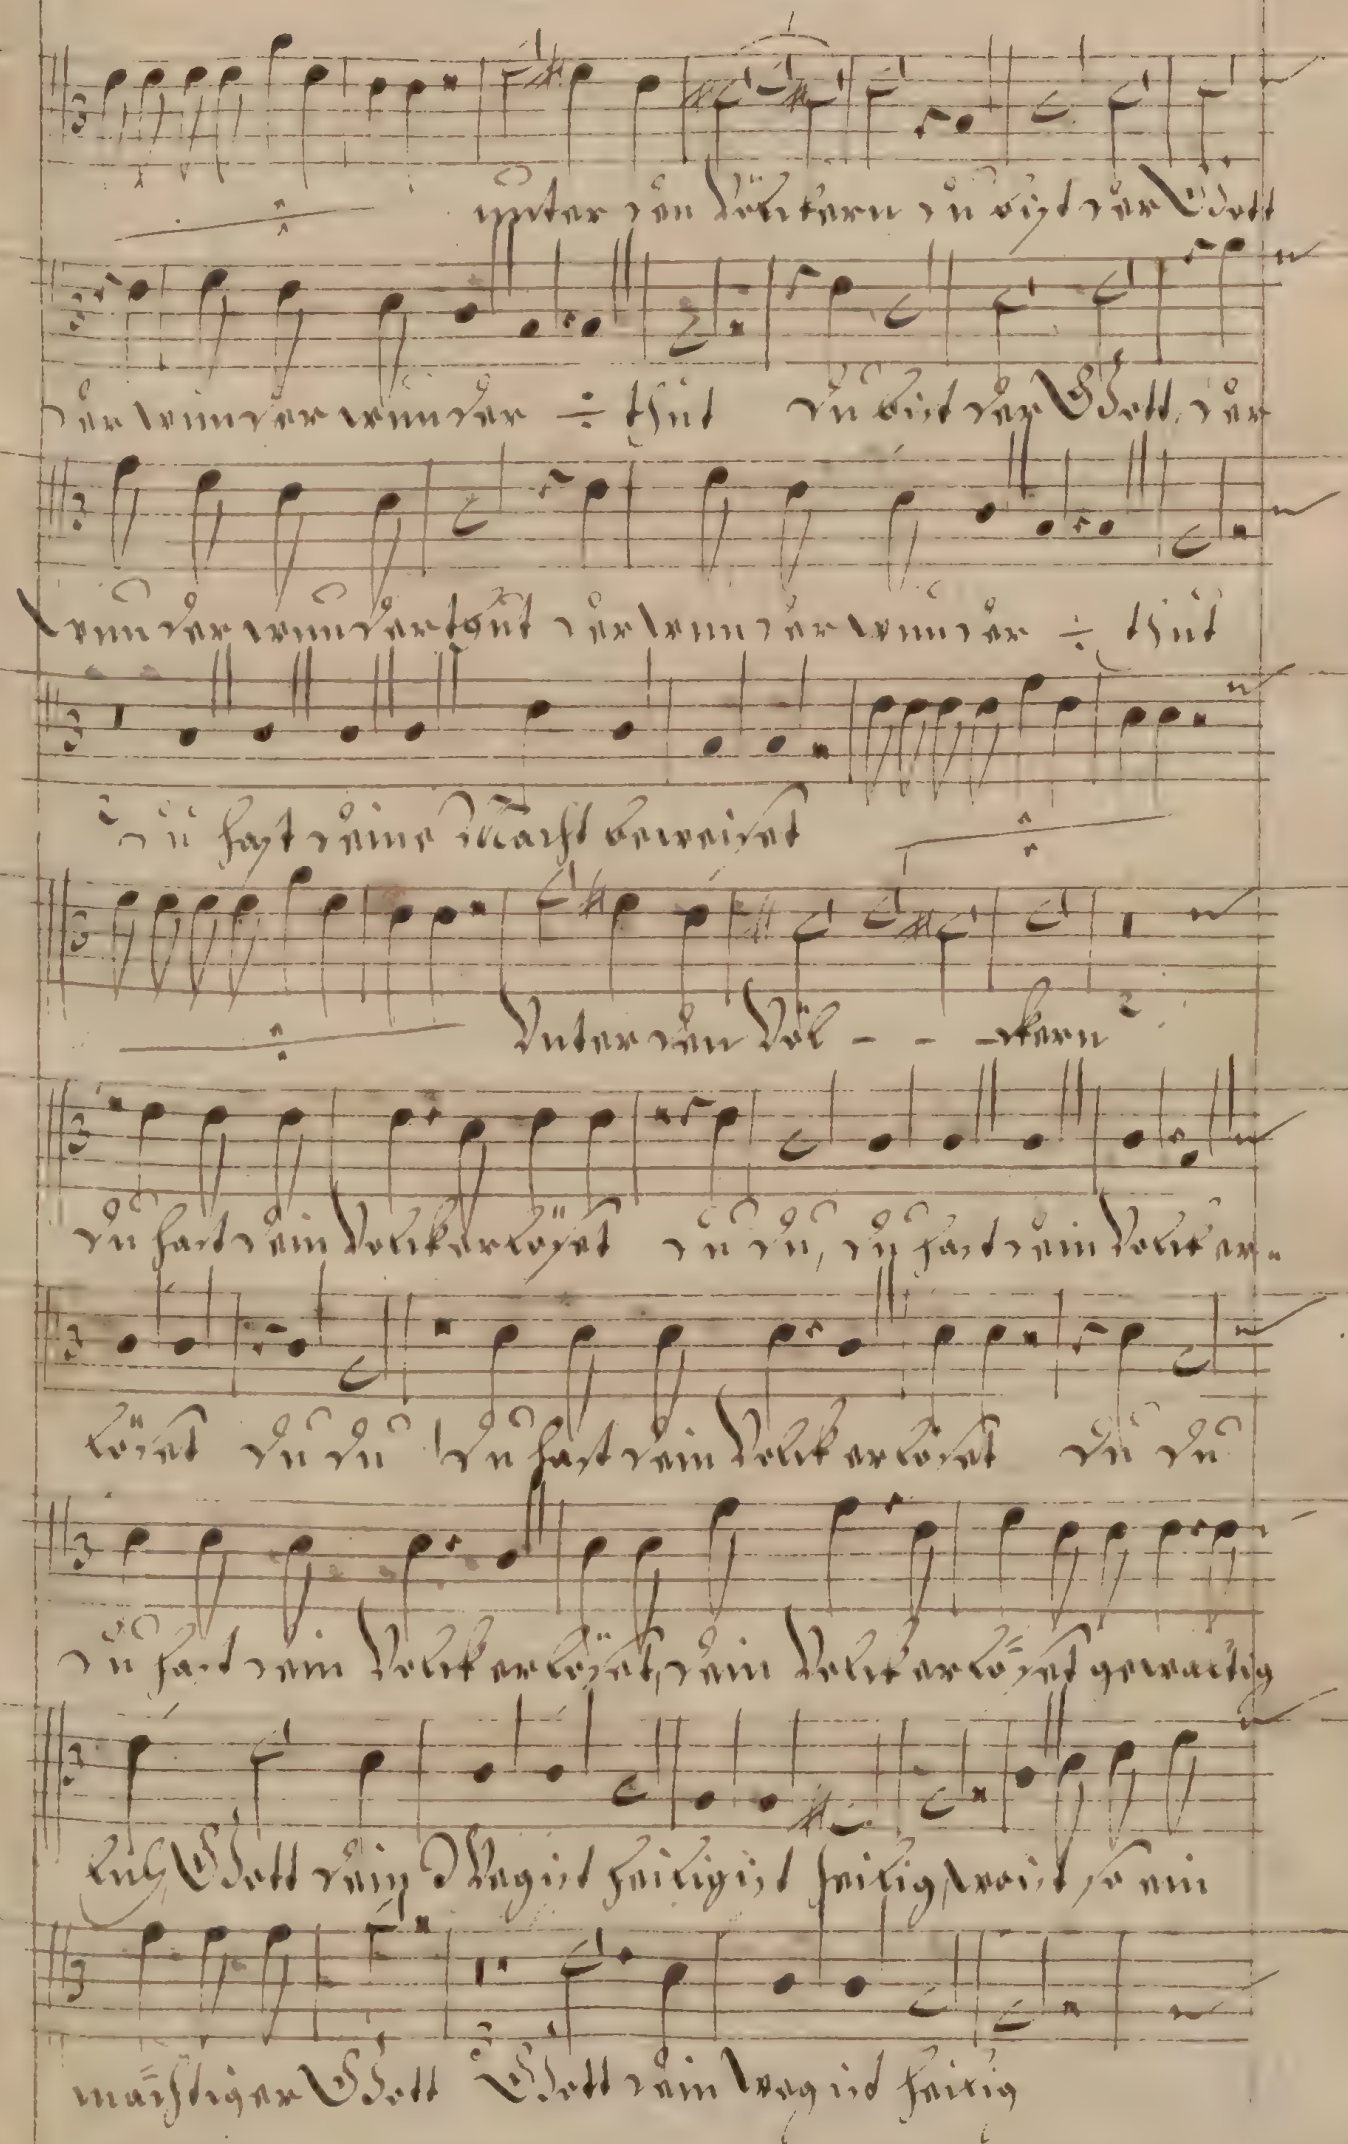 unter den Völckern du bist der Gott
der wunder wunder ÷ thut du bist der Gott, der
wunder wunder thut der wunder wunder ÷ thut
du hast deine Macht beweiset
Unter den Völ - - -ckern
du hast dein Volck erlöset du du, du hast dein Volck er-
löset du du du hast dein Volck erlöset du du
du hast dein Volck erlöset, dein Volck erlöset gewaltig
lich, Gott dein Weg ist heilig ist heilig, wo ist so ein
mächtiger Gott Gott dein weg ist heilig